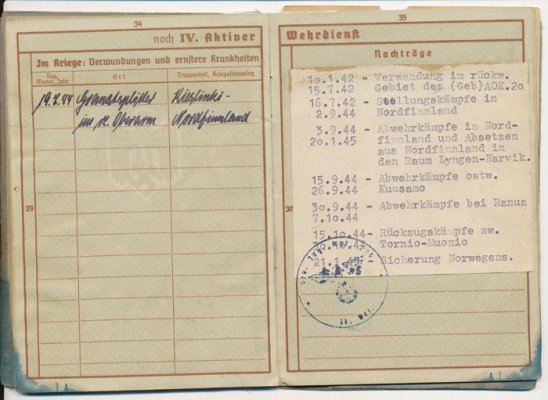 34
noch IV. Aktiver
Im Kriege: Verwundungen und ernstere Krankheiten
Tag, Monat, Jahr
Art
Truppenteil, Kriegsschauplatz
19.7.44 Granatsplitter
im r. Oberarm
Nordfinnland
29
35
Wehrdienst
Nachträge
10.1.42 - Verwendung im rückw.
15.7.42 Gebiet des (Geb)AOK.20
16.7.42 - Stellungskämpfe in
2.9.44 Nordfinnland
3.9.44 - Abwehrkämpfe in Nord-
20.1.45 finnland und Absetzen
aus Nordfinnland in
den Raum Lyngen-Narvik.
15.9.44 - Abwehrkämpfe ostw.
26.9.44 Kuusamo
30.9.44 - Abwehrkämpfe bei Ranua
7.10.44
15.10.44- Rückzugskämpfe zw.
Tornio-Muonio
Sicherung Norwegens.
30